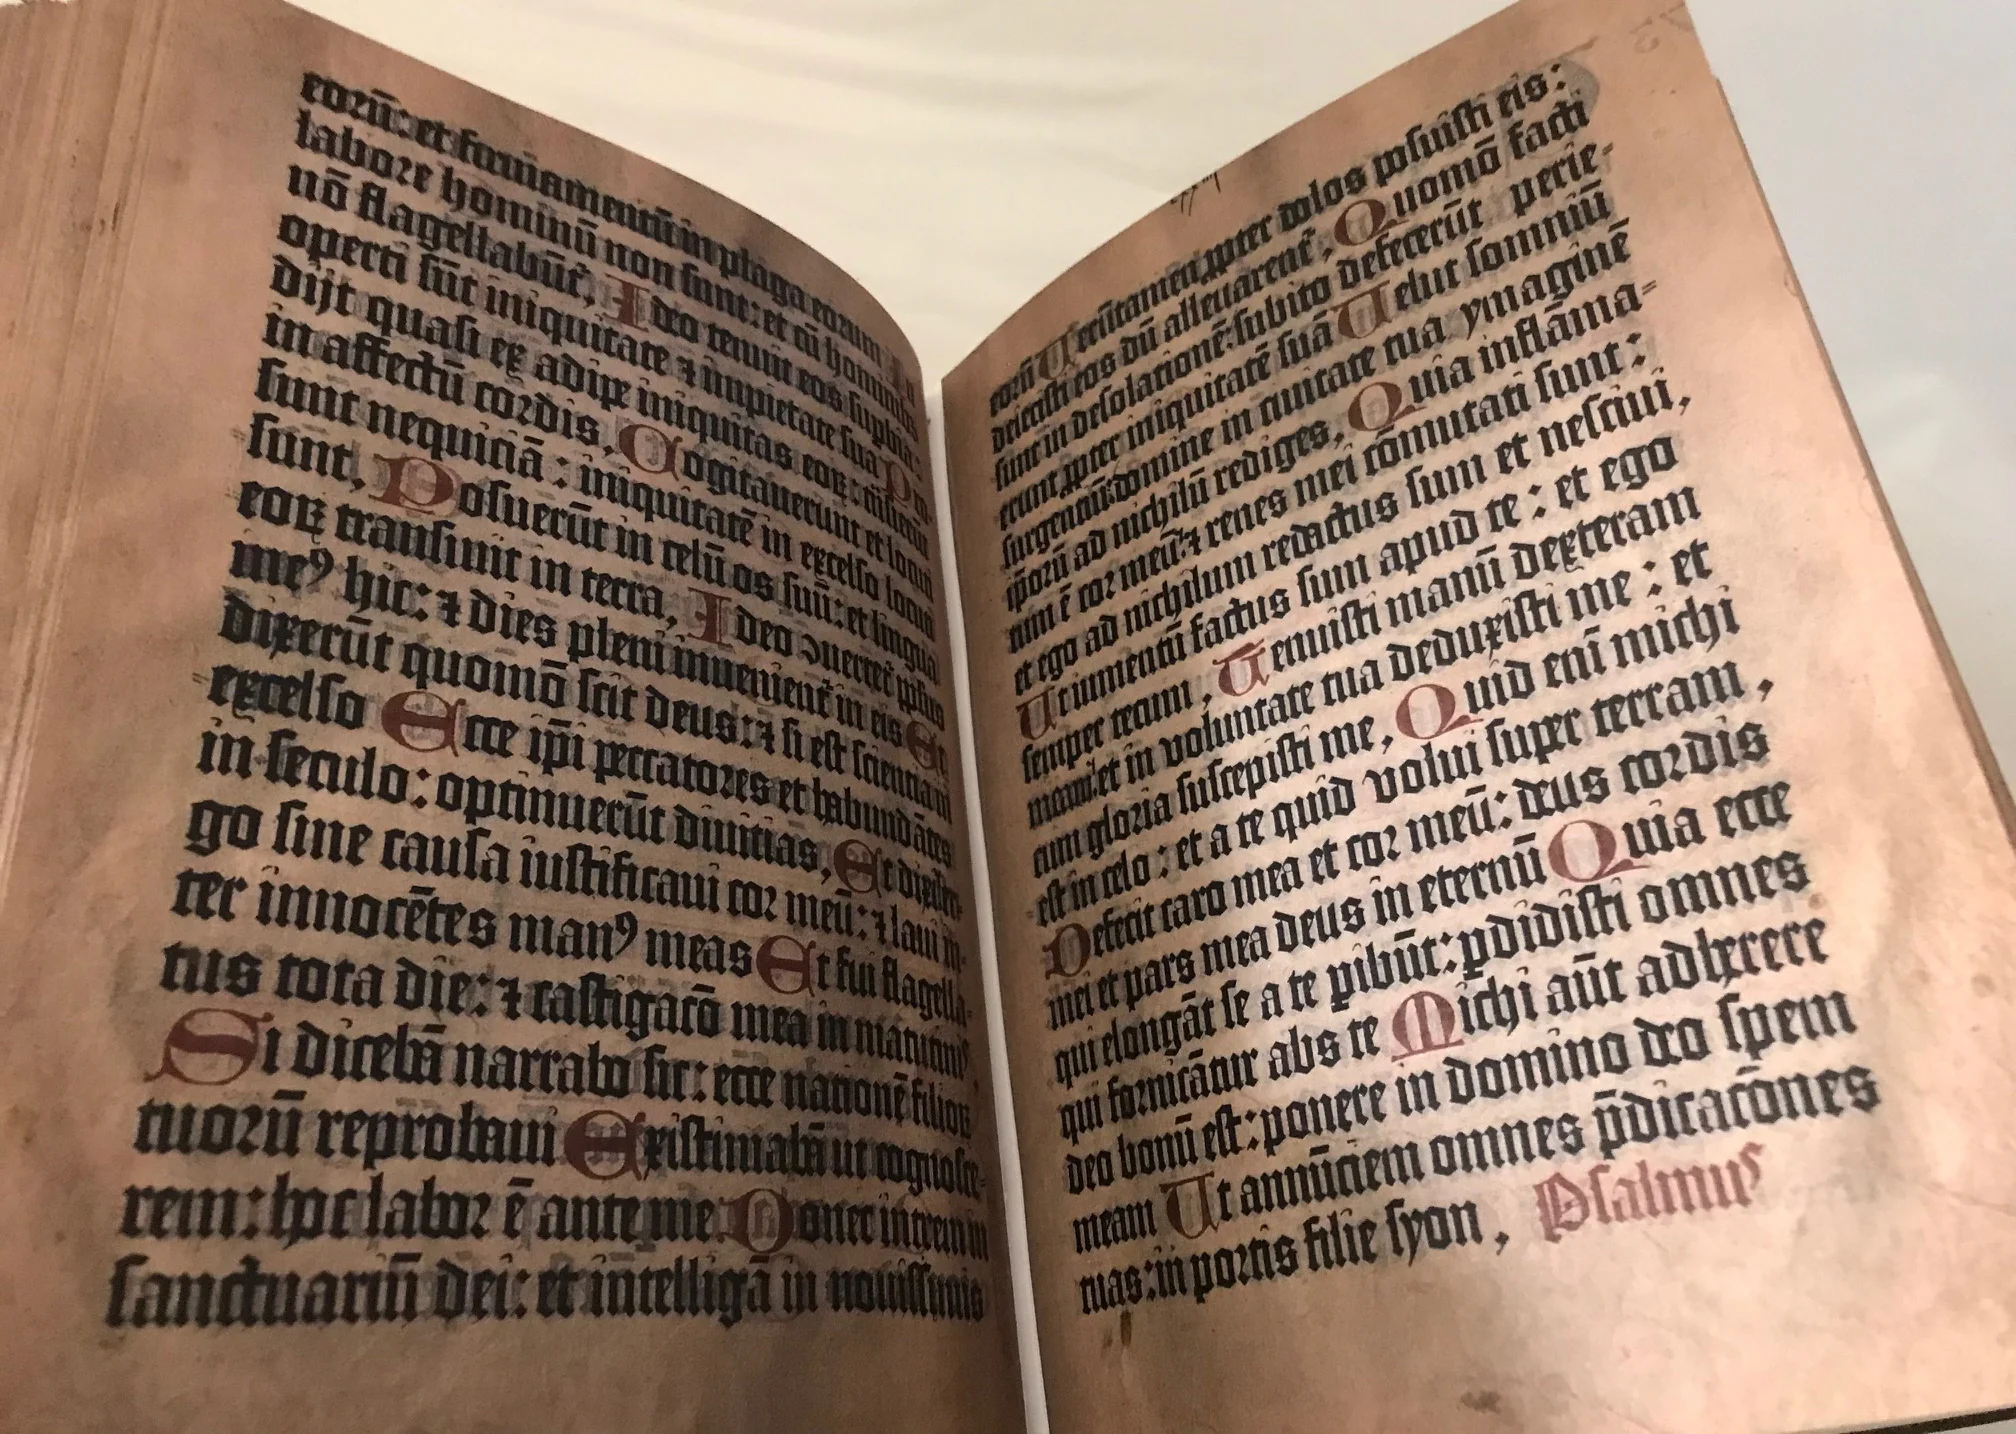 eorū: et firmamentū in plaga eorum In
labore hominū non sunt: et cū hominibus
nō flagellabūt᷑, Ideo tenuit eos supbia:
operti sūt iniquitate ⁊ impietate sua Pro-
dijt quasi ex adipe iniquitas eoꝝ: trāsierūt
in affectū cordis, Cogitauerunt et locuti
sunt nequiciā: iniquitatē in excelso locuti
sunt, Posuerūt in celū os suū: et lingua
eoꝝ transiuit in terra, Ideo ꝯuertet᷑ ppꝉus
meꝰ hic: ⁊ dies pleni inuenient᷑ in eis Et
dixerūt quomō scit deus: ⁊ si est scientia in
excelso Ecce ip̄i peccatores et habundātes
in seculo: optinuerūt diuitias, Et dixi er-
go sine causa iustificaui cor meū: ⁊ laui in-
ter innocētes manꝰ meas Et fui flagella-
tus tota die: ⁊ castigacō mea in matutinis
Si dicebā narrabo sic: ecce nationē filioꝝ
tuorū reprobaui Existimabā ut cognosce-
rem: hoc labor ē ante me Donec intrem in
sanctuariū dei: et intelligā in nouissimis
eorū Uerūtamen ꝓpter dolos posuisti eis:
deiecisti eos dū alleuarent᷑, Quomō facti
sunt in desolationē: subito defecerūt perie-
erunt ꝓpter iniquitatē suā Uelut somniū
surgentiū: domine in ciuitate tua ymaginē
ip̄orū ad nichilū rediges, Quia inflāma-
tum ē cor meū: ⁊ renes mei cōmutati sunt:
et ego ad nichilum redactus sum et nesciui,
Ut iumentū factus sum apud te: et ego
semper tecum, Tenuisti manū dexteram
meam: et in voluntate tua deduxisti me: et
cum gloria suscepisti me, Quid enī michi
est in celo: et a te quid volui super terram,
Defecit caro mea et cor meū: deus cordis
mei et pars mea deus in eternū Quia ecce
qui elongāt se a te ꝑibūt: ꝑdidisti omnes
qui fornicātur abs te Michi aūt adherere
deo bonū est: ponere in domino deo spem
meam Ut annūciem omnes p̄dicacōnes
tuas: in portis filie syon, Psalmus